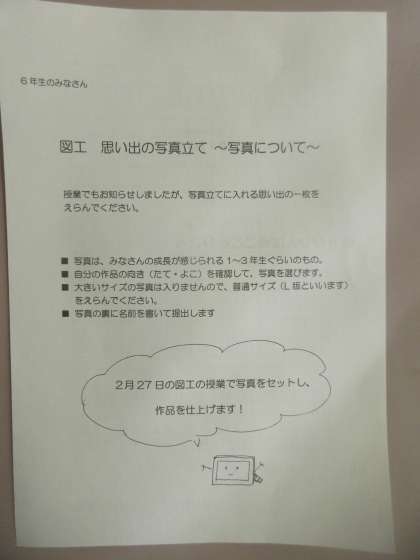 6年生のみなさん
図工　思い出の写真立て　～写真について～
授業でもお知らせしましたが、写真立てに入れる思い出の一枚を
えらんでください。
■ 写真は、みなさんの成長が感じられる1～3年生ぐらいのもの。
■ 自分の作品の向き（たて・よこ）を確認して、写真を選びます。
■ 大きいサイズの写真は入りませんので、普通サイズ（L版といいます）
をえらんでください。
■ 写真の裏に名前を書いて提出します
2月27日の図工の授業で写真をセットし、
作品を仕上げます！